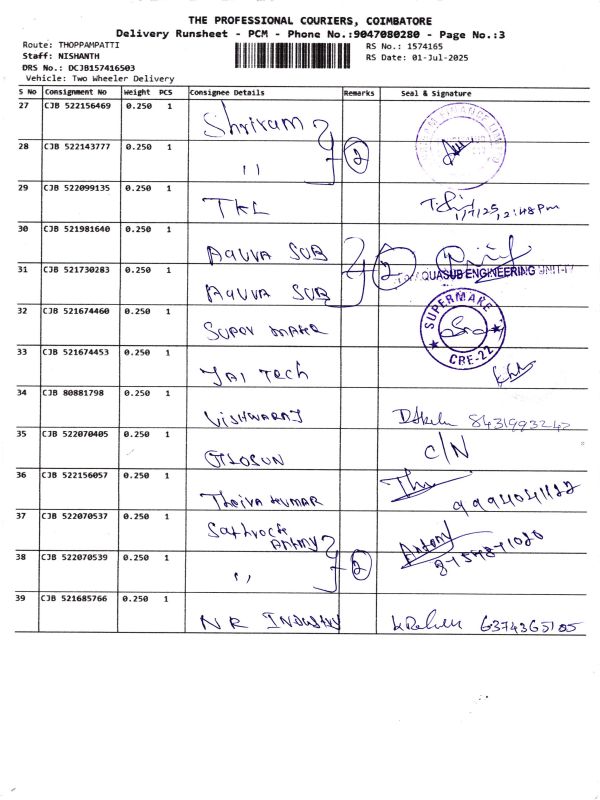 THE PROFESSIONAL COURIERS, COIMBATORE
Delivery Runsheet - PCM - Phone No.:9047080280 - Page No.:3
Route: THOPPAMPATTI
RS No.: 1574165
Staff: NISHANTH
RS Date: 01-Jul-2025
DRS No.: DCJB157416503
Vehicle: Two Wheeler Delivery
S No Consignment No Weight PCS Consignee Details Remarks Seal & Signature
27 CJB 522156469 0.250 1 Shriram
28 CJB 522143777 0.250 1 " 2
29 CJB 522099135 0.250 1 TKL 1/7/25, 2:48 Pm
30 CJB 521981640 0.250 1 AQUVA SUB 2
31 CJB 521730283 0.250 1 AQUVA SUB AQUASUB ENGINEERING UNIT-
32 CJB 521674460 0.250 1 SUPOV MAKR SUPERMAKE CRE-22
33 CJB 521674453 0.250 1 JAI Tech
34 CJB 80881798 0.250 1 VISHWARAJ
35 CJB 522070405 0.250 1 C/N
36 CJB 522156057 0.250 1 Theiva KUMAR
37 CJB 522070537 0.250 1 Antony
38 CJB 522070539 0.250 1 " 2
39 CJB 521685766 0.250 1 N R INDUSTRY 6374365105